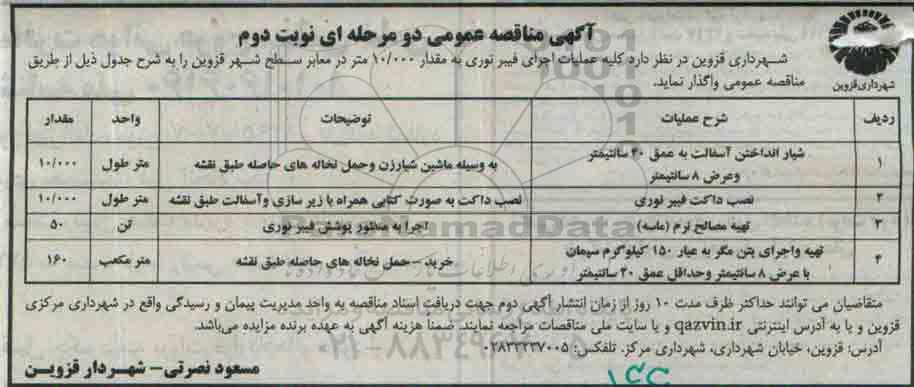 آگهی مناقصه عمومی دو مرحله ای نوبت دوم
شهرداری قزوین
شهرداری قزوین در نظر دارد کلیه عملیات اجرای فیبر نوری به مقدار ۱۰/۰۰۰ متر در معابر سطح شهر قزوین را به شرح جدول ذیل از طریق
مناقصه عمومی واگذار نماید.
ردیف شرح عملیات توضیحات واحد مقدار
۱ شیار انداختن آسفالت به عمق ۴۰ سانتیمتر وعرض ۸ سانتیمتر به وسیله ماشین شیارزن وحمل نخاله های حاصله طبق نقشه متر طول ۱۰/۰۰۰
۲ نصب داکت فیبر نوری نصب داکت به صورت کتابی همراه با زیر سازی وآسفالت طبق نقشه متر طول ۱۰/۰۰۰
۳ تهیه مصالح نرم (ماسه) اجرا به منظور پوشش فیبر نوری تن ۵۰
۴ تهیه واجرای بتن مگر به عیار ۱۵۰ کیلوگرم سیمان با عرض ۸ سانتیمتر وحداقل عمق ۲۰ سانتیمتر خرید-حمل نخاله های حاصله طبق نقشه متر مکعب ۱۶۰
متقاضیان می توانند حداکثر ظرف مدت ۱۰ روز از زمان انتشار آگهی دوم جهت دریافت اسناد مناقصه به واحد مدیریت پیمان و رسیدگی واقع در شهرداری مرکزی
قزوین و یا به آدرس اینترنتی qazvin.ir و یا سایت ملی مناقصات مراجعه نمایند. ضمنا هزینه آگهی به عهده برنده مزایده می‌باشد.
آدرس: قزوین، خیابان شهرداری، شهرداری مرکز. تلفکس: ۰۲۸۳۳۲۳۷۰۰۵
مسعود نصرتی- شهردار قزوین
ParsNamadData
۰۲۱-۸۸۳۴۹۶۷۰-۵